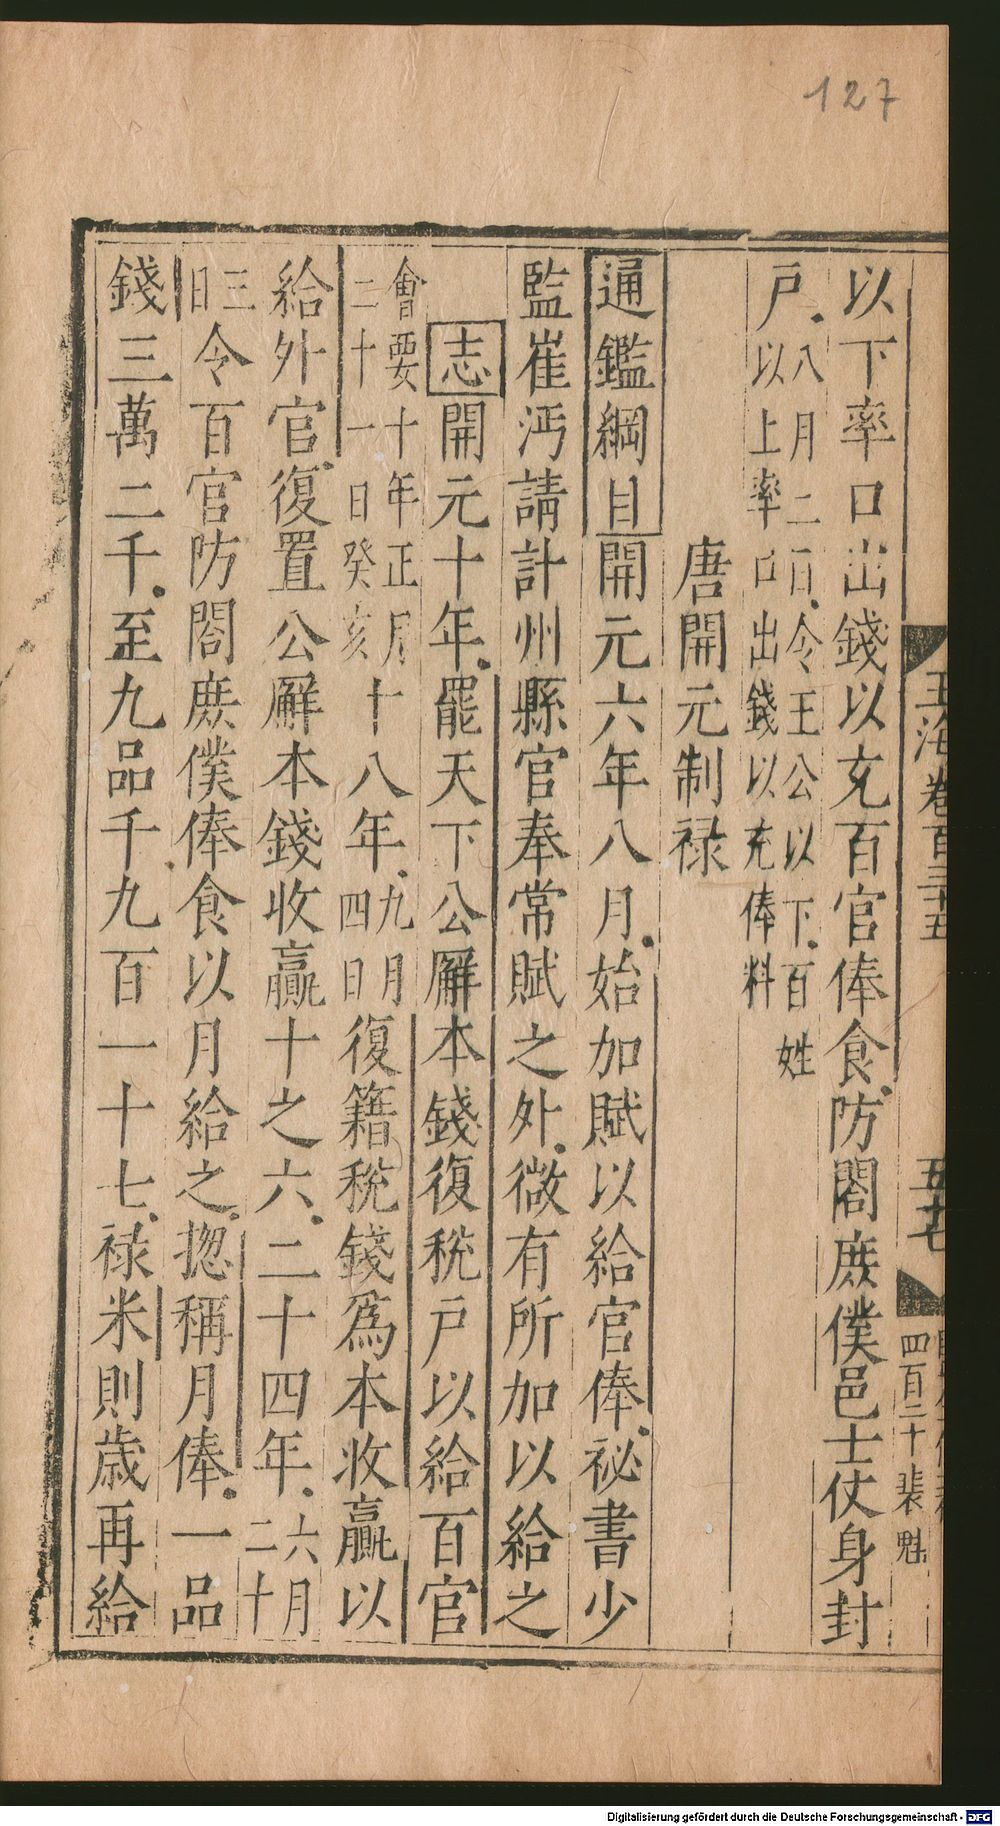 127
玉海卷百三十五
五十七
四百二十 裴魁
以下率口出錢以充百官俸食防閤庶僕邑士仗身封
戶八月二百令王公以下百姓
以上率口出錢以充俸料
唐開元制禄
通鑑綱目開元六年八月始加賦以給官俸祕書少
監崔沔請計州縣官奉常賦之外微有所加以給之
志開元十年罷天下公廨本錢復稅戶以給百官
會要十年正月
二十一日癸亥
十八年九月
四日
復籍稅錢為本收贏以
給外官復置公廨本錢收贏十之六二十四年六月
二十
三
日
令百官防閤庶僕俸食以月給之揔稱月俸一品
錢三萬二千至九品千九百一十七禄米則歲再給
Digitalisierung gefördert durch die Deutsche Forschungsgemeinschaft - DFG